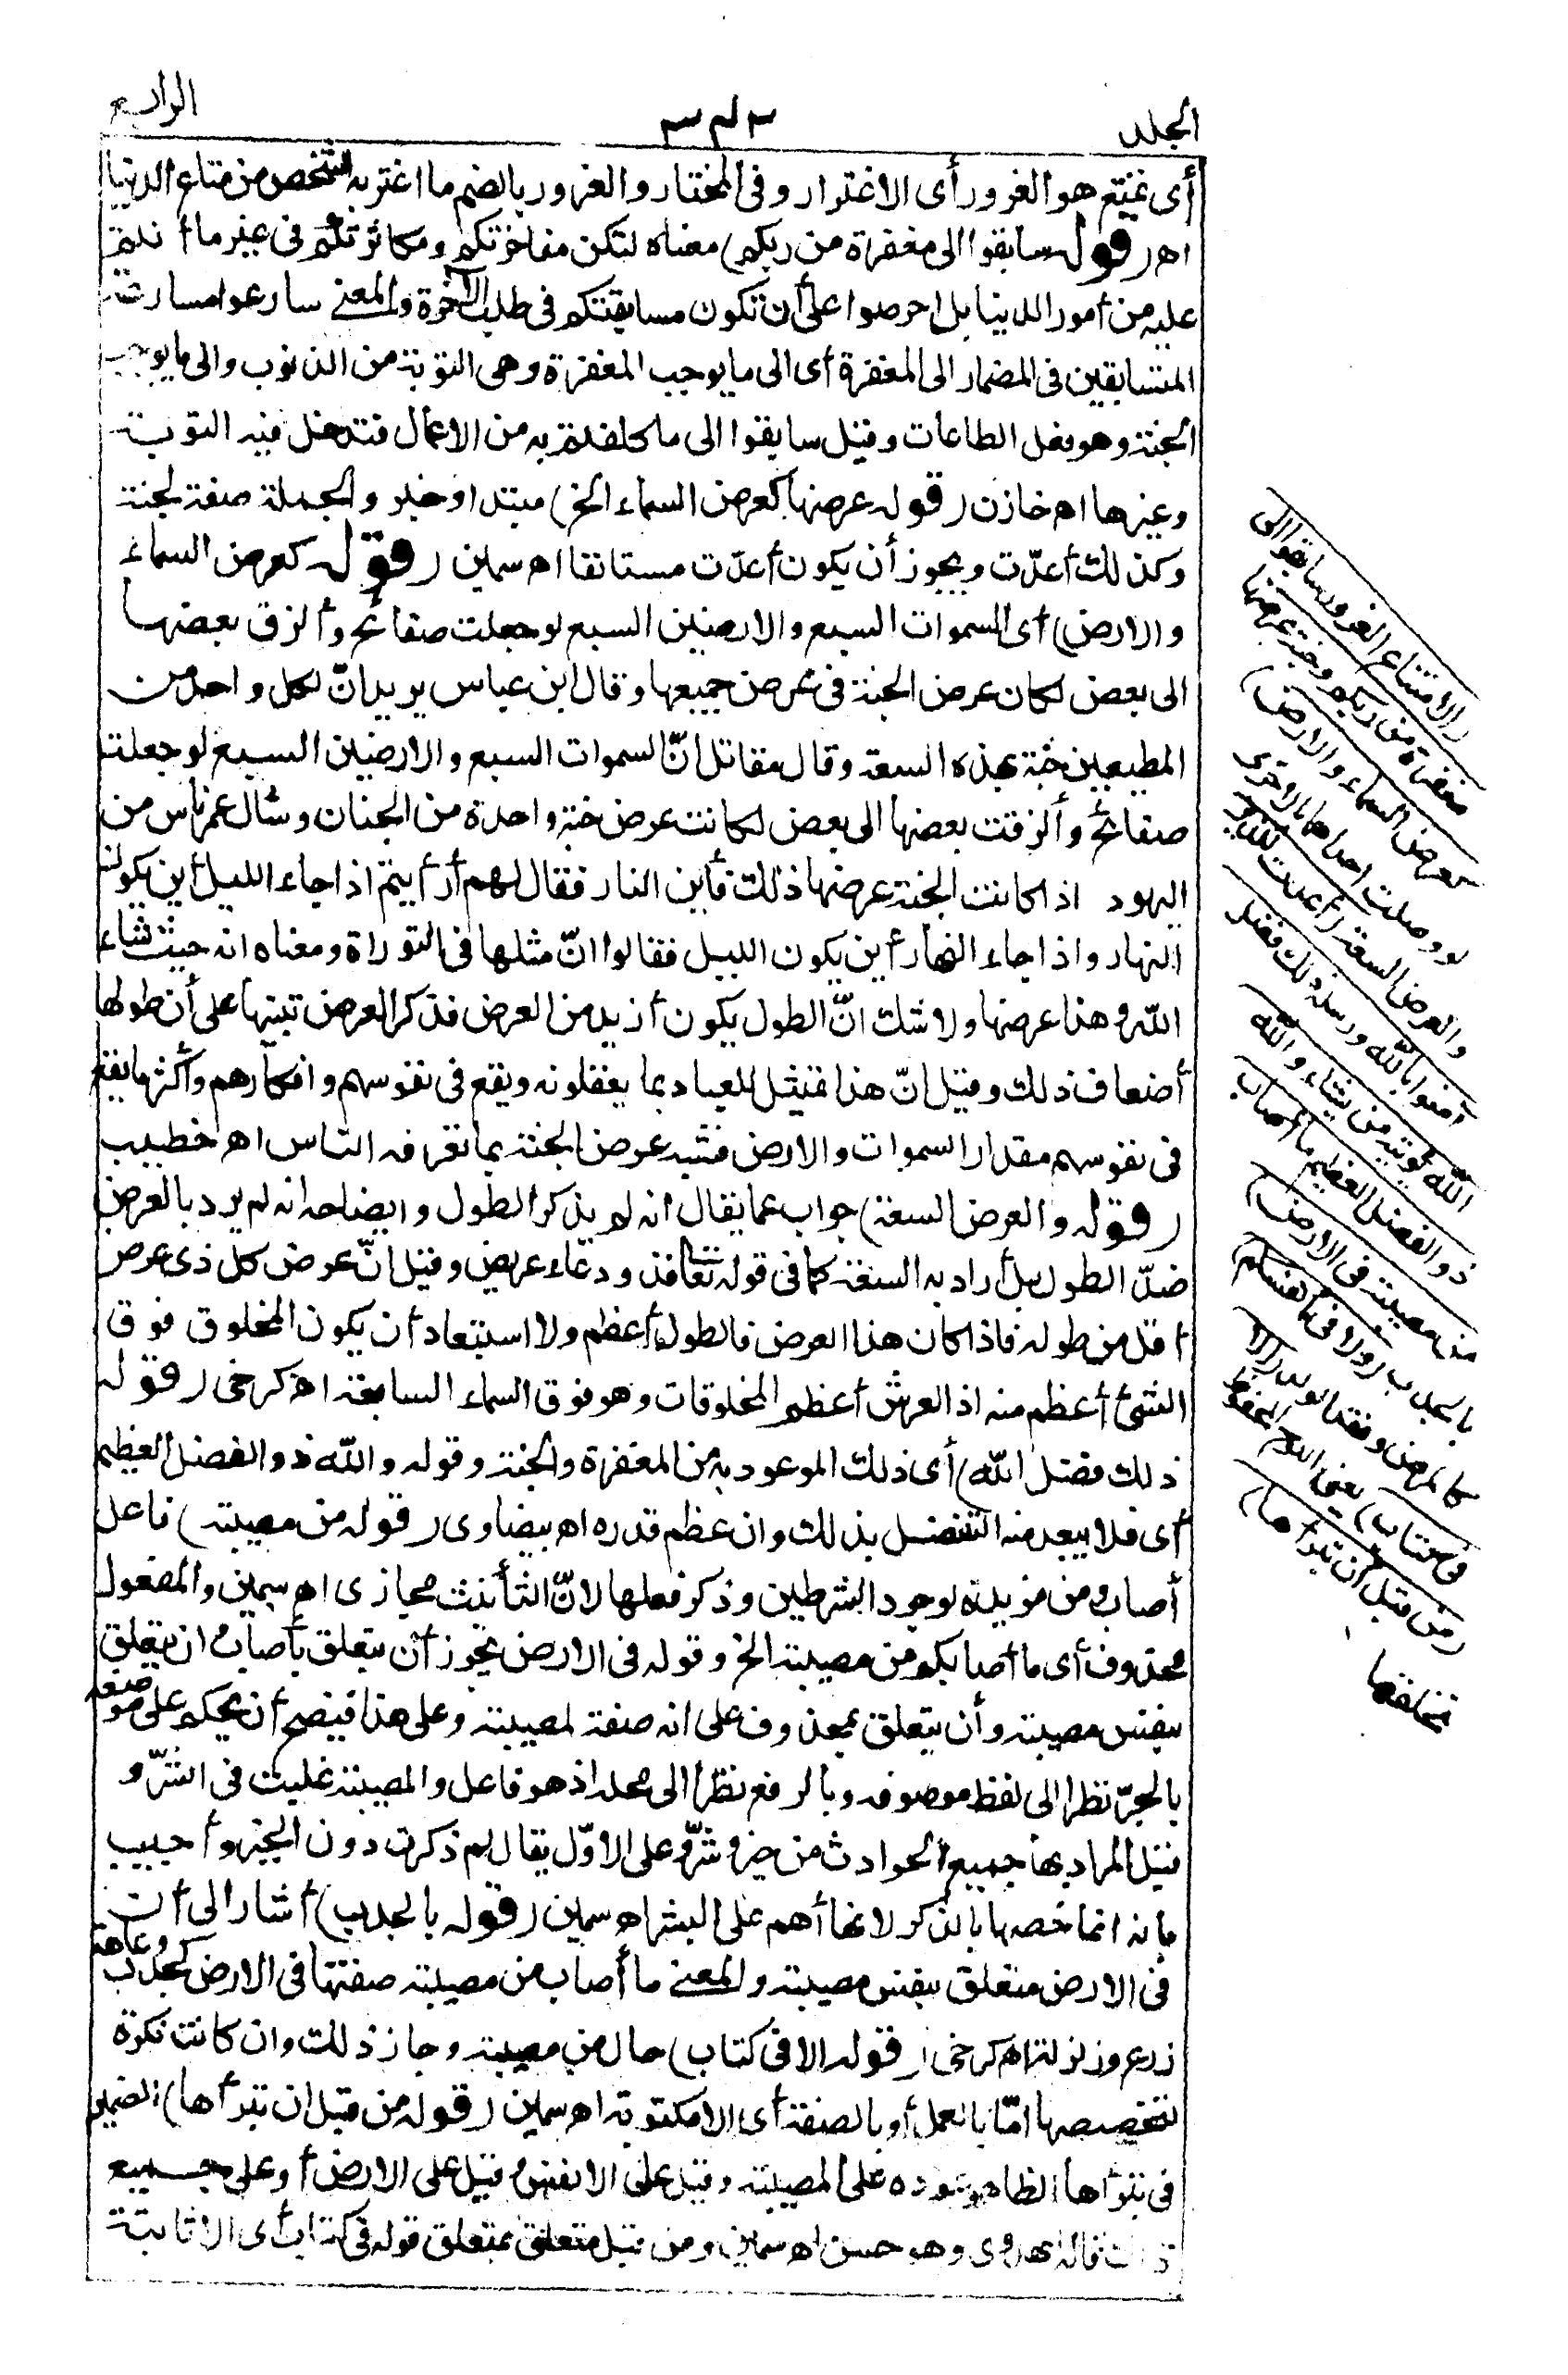 الجلد
الرابع
أى تمتع هو الغرور أى الاغترار وفى المختار والغرور بالضم ما اغتر به الشخص من متاع الدنيا
اه (قوله سابقوا الى مغفرة من ربكم) معناه لتكن مفاخرتكم ومكاثرتكم فى غير ما أنتم
عليه من أمور الدنيا بل احرصوا على أن تكون مسابقتكم فى طلب الآخرة والمعنى سارعوا مسارعة
المتسابقين فى المضمار الى المغفرة أى الى ما يوجب المغفرة وهى التوبة من الذنوب والى ما يوجب
الجنة وهو فعل الطاعات وقيل سابقوا الى ما كلفتم به من الاعمال فتدخل فيه التوبة
وغيرها اه خازن (قوله عرضها كعرض السماء الخ) مبتدا وخبر والجملة صفة لجنة
وكذلك أعدّت ويجوز أن يكون أعدّت مستانفا اه سمين (قوله كعرض السماء
والارض) أى السموات السبع والارضين السبع لو جعلت صفائح وألزق بعضها
الى بعض لكان عرض الجنة فى عرض جميعها وقال ابن عباس يريد انّ لكل واحد من
المطيعين جنة بهذه السعة وقال مقاتل انّ السموات السبع والارضين السبع لو جعلت
صفائح وألزقت بعضها الى بعض لكانت عرض جنة واحدة من الجنان وسأل عمر ناس من
اليهود اذا كانت الجنة عرضها ذلك فأين النار فقال لهم أرأيتم اذا جاء الليل أين يكون
النهار واذا جاء النهار أين يكون الليل فقالوا انّ مثلها فى التوراة ومعناه انه حيث شاء
الله وهذا عرضها ولا شك انّ الطول يكون أزيد من العرض فذكر العرض تنبيها على أن طولها
أضعاف ذلك وقيل انّ هذا تمثيل للعباد بما يعقلونه ويقع فى نفوسهم وافكارهم وأكثر ما يقع
فى نفوسهم مقدار السموات والارض فشبه عرض الجنة بما تعرفه الناس اه خطيب
(قوله والعرض السعة) جواب عما يقال انه لم يذكر الطول وايضاحه انه لم يرد بالعرض
ضدّ الطول بل أراد به السعة كما فى قوله تعالى فذو دعاء عريض وقيل انّ عرض كل ذى عرض
أقل من طوله فاذا كان هذا العرض فالطول أعظم ولا استبعاد أن يكون المخلوق فوق
الشئ أعظم منه اذ العرش أعظم المخلوقات وهو فوق السماء السابعة اه كرخى (قوله
ذلك فضل الله) أى ذلك الموعود به من المغفرة والجنة وقوله والله ذو الفضل العظيم
أى فلا يبعد منه التفضل بذلك وان عظم قدره اه بيضاوى (قوله من مصيبة) فاعل
أصاب ومن مزيدة لوجود الشرطين وذكر فعلها لانّ التأنيث مجازى اه سمين والمفعول
محذوف أى ما أصابكم من مصيبة الخ وقوله فى الارض يجوز أن يتعلق بأصاب وان يتعلق
بنفس مصيبة وأن يتعلق بمحذوف على انه صفة لمصيبة وعلى هذا فيصح أن يحكم على موضعه
بالجرّ نظرا الى لفظ موصوفه وبالرفع نظرا الى محله اذ هو فاعل والمصيبة غلبت فى الشرّ و
قيل المراد بها جميع الحوادث من خير وشرّ وعلى الاوّل يقال لم ذكرت دون الخير وأجيب
بانه انما خصها بالذكر لانها أهم على البشر اه سمين (قوله بالجدب) أشار الى أن
فى الارض متعلق بنفس مصيبة والمعنى ما أصاب من مصيبة صفتها فى الارض كجدب وعاهة
زرع وزلزلة اه كرخى (قوله الا فى كتاب) حال من مصيبة وجاز ذلك وان كانت نكرة
لتخصيصها امّا بالعمل أو بالصفة أى الا مكتوبة اه سمين (قوله من قبل ان نبرأها) الضمير
فى نبرأها الظاهر عوده على المصيبة وقيل على الانفس وقيل على الارض أو على جميع
ذلك قاله المهدوى وهو حسن اه سمين ومن قبل متعلق بمتعلق قوله فى كتاب أى الا ثابتة
(الا متاع الغرور سابقوا الى
مغفرة من ربكم وجنة عرضها
كعرض السماء والارض)
لو وصلت احداهما بالاخرى
والعرض السعة (أعدت للذين
آمنوا بالله ورسله ذلك فضل
الله يؤتيه من يشاء والله
ذو الفضل العظيم ما أصاب
من مصيبة فى الارض)
بالجدب (ولا فى أنفسكم)
كالمرض وفقد الولد (الا
فى كتاب) يعنى اللوح المحفوظ
(من قبل أن نبرأها)
نخلقها